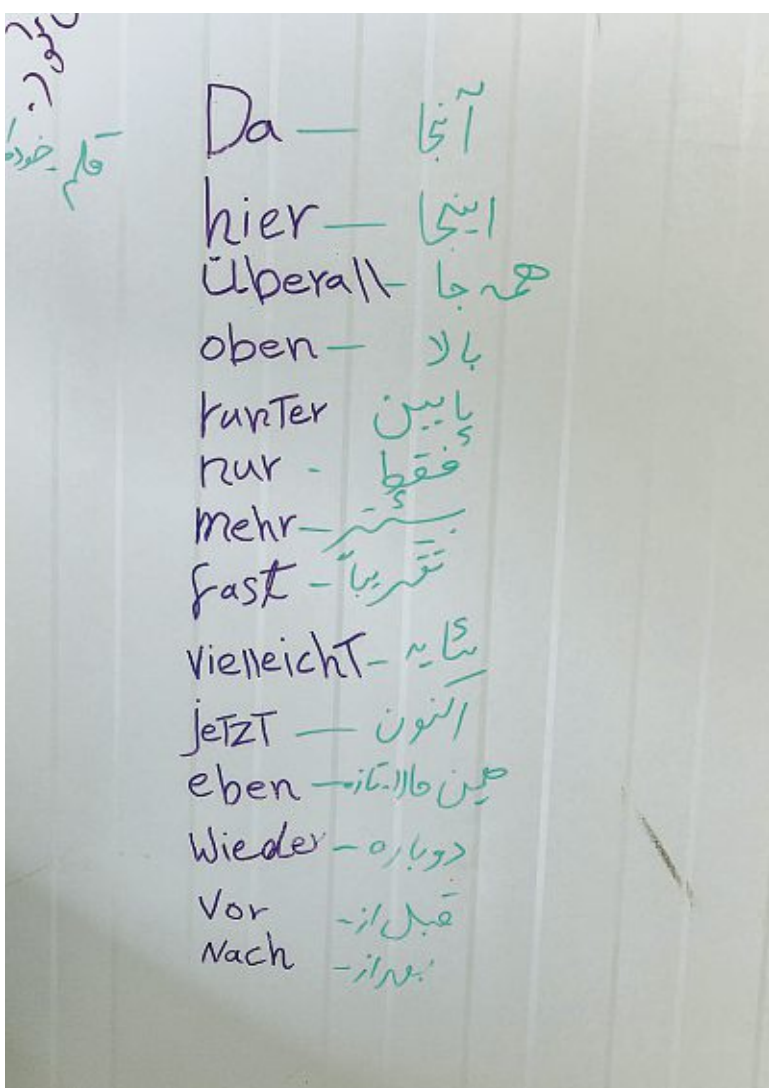 قلم خود
Da — آنجا
hier — اینجا
Überall - همه جا
oben — بالا
runter پایین
nur - فقط
mehr — بیشتر
fast - تقریباً
vielleicht - شاید
jetzt — اکنون
eben — همین حالا. تازه
Wieder - دوباره
Vor - قبل از
Nach - بعد از